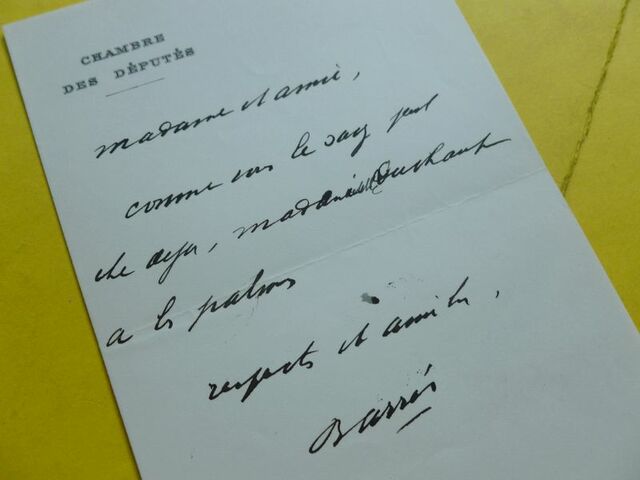 CHAMBRE
DES DÉPUTÉS
madame et amie,
comme vous le savez peut
etre deja, mademoiselle
a les palmes
respects et amitiés,
Barrès